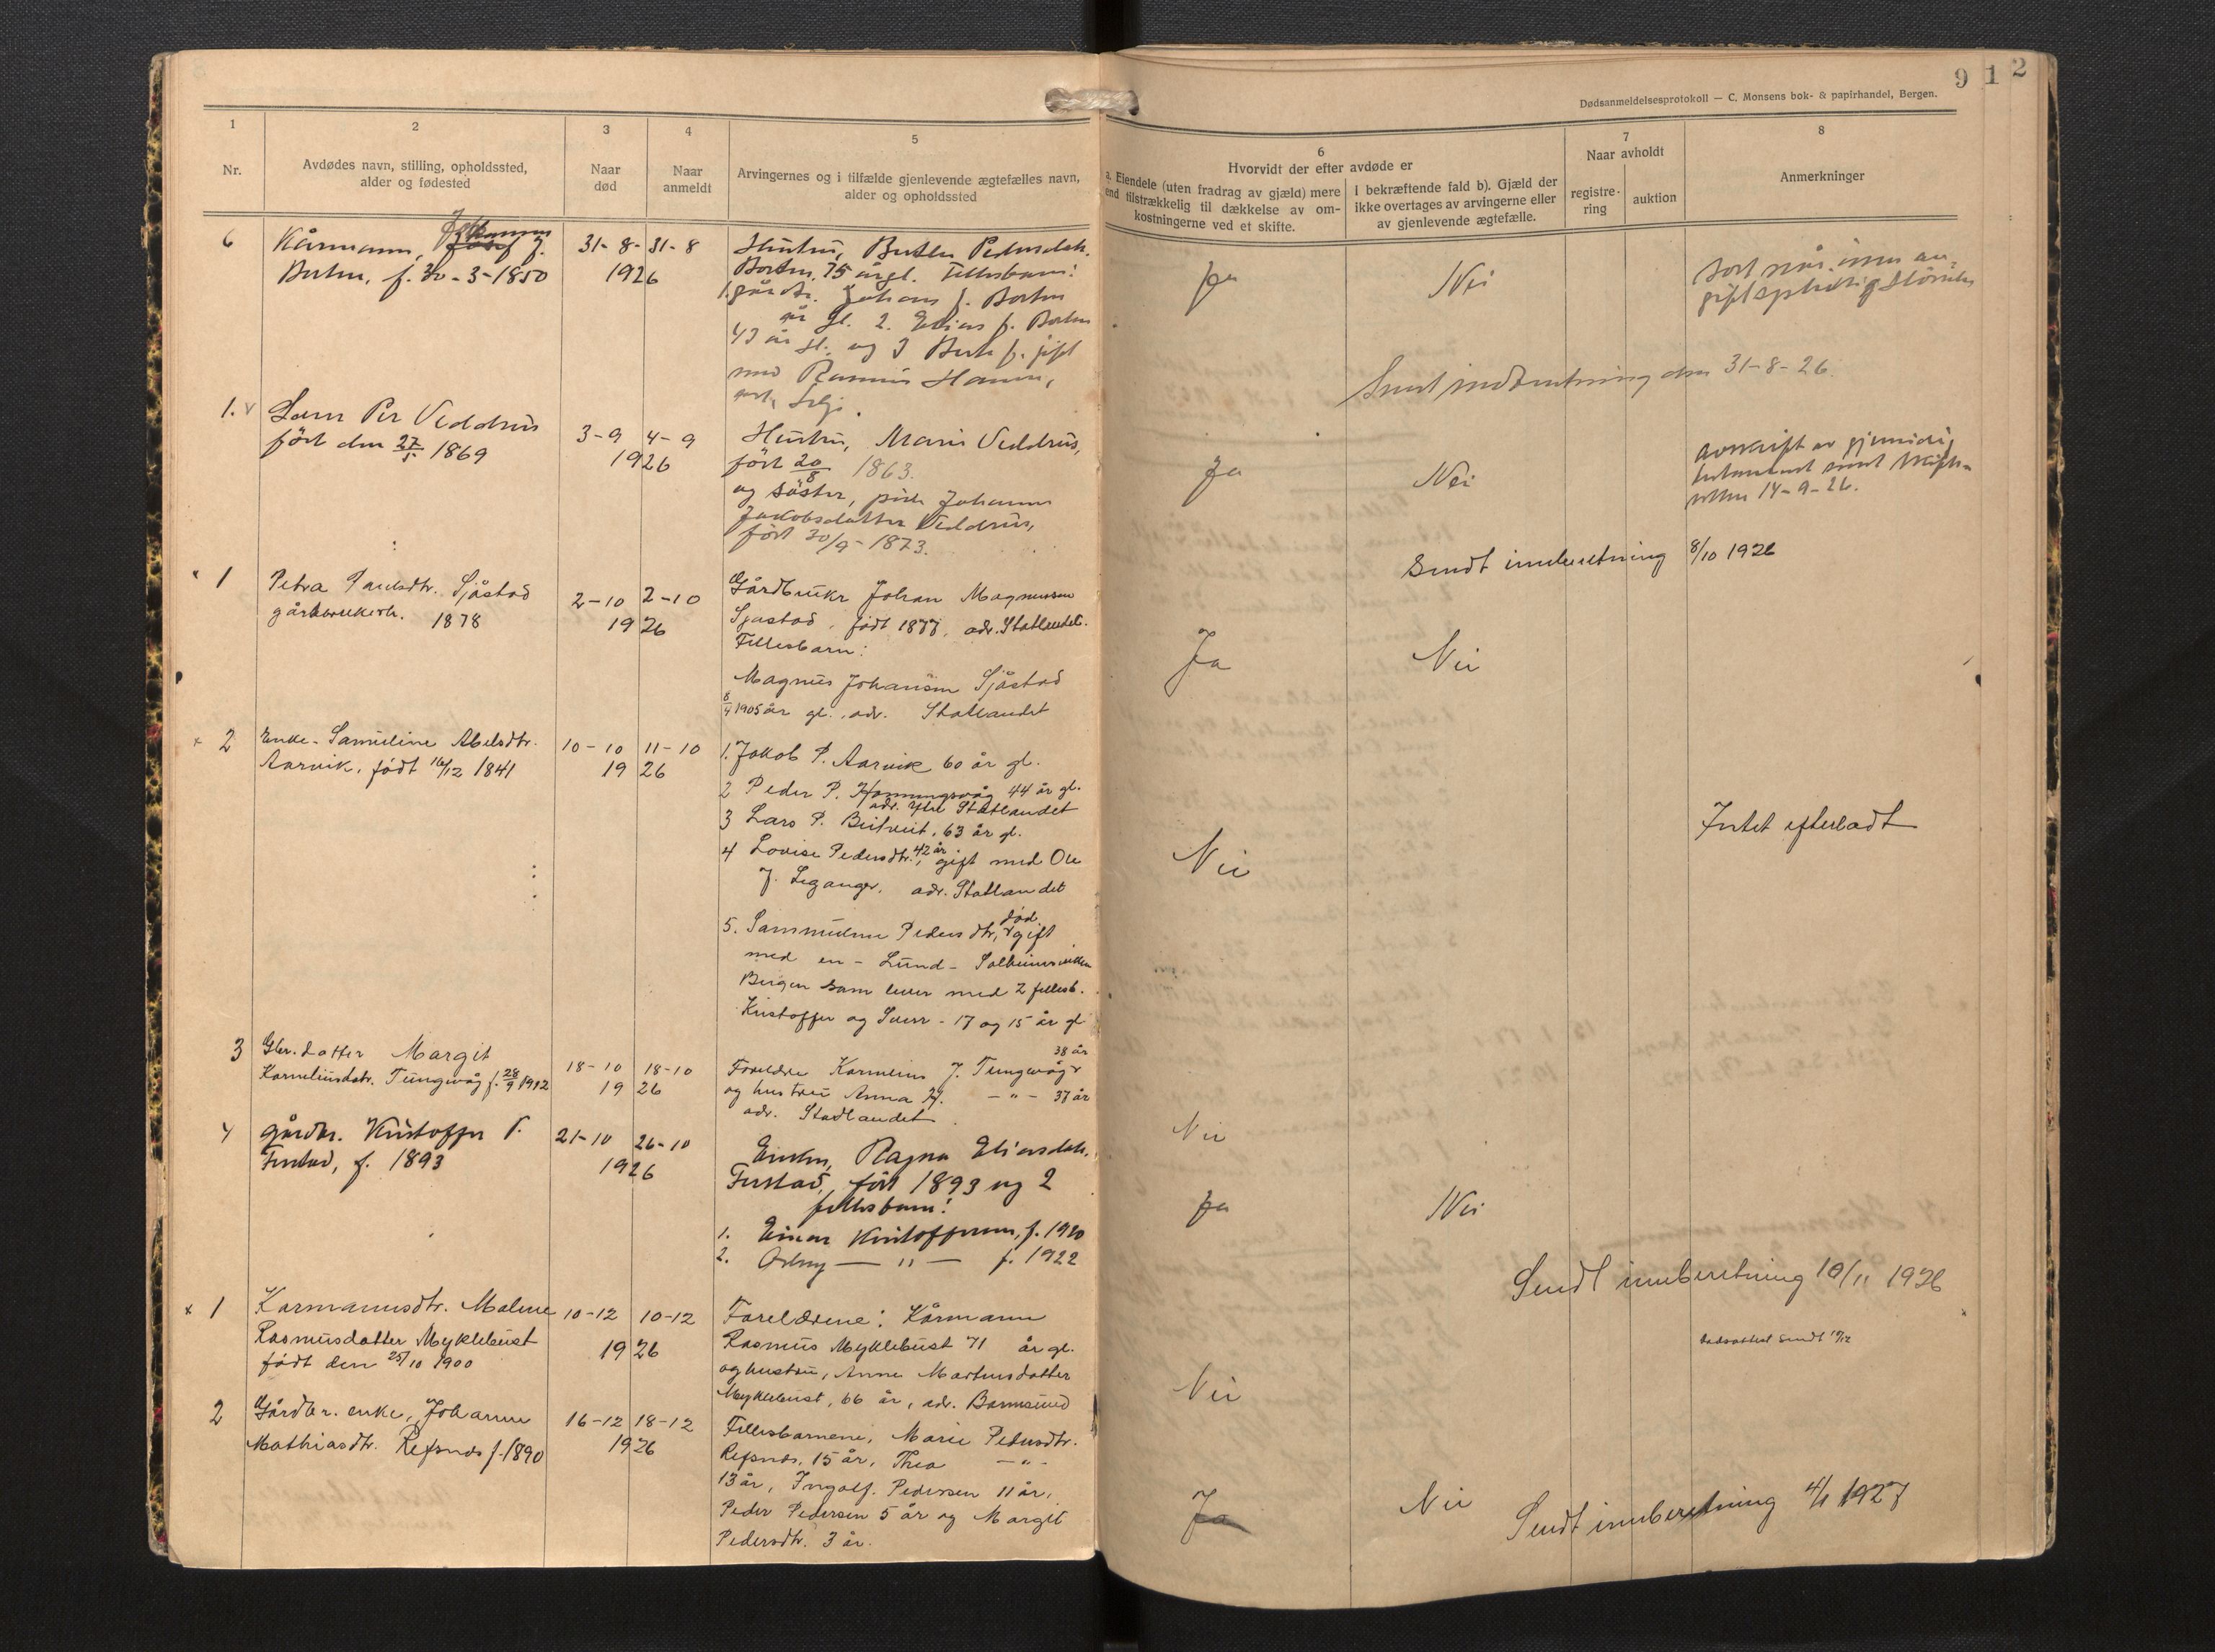 9 1 2
Dødsanmeldelsesprotokoll — C. Monsens bok- & papirhandel, Bergen.
1
Nr.
2
Avdødes navn, stilling, opholdssted,
alder og fødested
3
Naar
død
4
Naar
anmeldt
5
Arvingernes og i tilfælde gjenlevende ægtefælles navn,
alder og opholdssted
6
Hvorvidt der efter avdøde er
a. Eiendele (uten fradrag av gjæld) mere
end tilstrækkelig til dækkelse av om-
kostningerne ved et skifte.
I bekræftende fald b). Gjæld der
ikke overtages av arvingerne eller
av gjenlevende ægtefælle.
7
Naar avholdt
registre-
ring
auktion
8
Anmerkninger
6
Kårmann, J.
f. 30-3-1850
31-8-
31-8
1926
Hustru, Pedersdatr.
75 år gl. Fellesbarn:
1. gårdbr. Johans J.
år gl. 2. Elias J.
43 år gl. og 3 J. gift
med Rasmus
Ja
Nei
Sendt indberetning den 31-8-26
1.
Lars Per Veddrus
född den 27/5 1869
3-9
4-9
1926
Hustru, Maria Veddrus,
född 20/8 1863.
og söster, pike Johanne
Jakobsdatter Veddrus,
född 30/9-1873.
Ja
Nei
avskrift av gjensidig
testament sendt skifte-
retten 14-9-26.
Sendt innberetning 8/10 1926
1
Petra Paulsdtr. Sjåstad
gårdbrukerh. 1878
2-10
2-10
1926
Gårdbrukr Johan Magnussen
Sjåstad, født 1877, adr. Statlandet.
Fellesbarn:
Magnus Johansen Sjåstad
8/4 1905 år gl., adr. Statlandet
Ja
Nei
2
Enke- Samueline Abelsdtr.
Aarvik, født 16/12 1841
10-10
11-10
1926
1. Jakob P. Aarvik 60 år gl.
2 Peder P. Honningsvåg 44 år gl.
adr. Ytre Statlandet
3 Lars P. Beitveit, 63 år gl.
4 Lovise Pedersdtr. 42 år, gift med Ole
J. Leganger, adr. Statlandet
5. Sammueline Pedersdtr, død gift
med en - Lund - Solheimsviken
Bergen som lever med 2 fellesb.
Kristoffer og Sverr - 17 og 15 år gl
Nei
Intet efterladt
3
Gbr. datter Margit
Korneliusdatr. Tungevåg f. 28/9 1912
18-10
18-10
1926
Foreldre Kornelius J. Tungevåg 38 år
og hustru Anna H. - " - 37 år
adr. Stadlandet
Nei
4
gårdbr. Kristoffer P.
Furstad, f. 1893
21-10
26-10
1926
Enken, Ragna Eliasdatr.
Furstad, född 1893 og 2
fellesbarn:
1. Einar Kristoffersen, f. 1920
2. — " — f. 1922
Ja
Nei
Sendt innberetning 10/11 1926
1
Karmannsdtr. Malene
Rasmusdatter Myklebust
født den 25/10 1900
10-12
10-12
1926
Foreldrene: Kårmann
Rasmus Myklebust 71 år gl.
og hustru, Anne Martinsdatter
Myklebust, 66 år, adr. Barmsund
Nei
Dødsattest sendt
2
Gårdbr. enke, Johanne
Mathiasdtr. Refsnes f. 1890
16-12
18-12
1926
Fellesbarnene, Marie Pedersdtr.
Refsnes, 15 år, Thea - " -
13 år, Ingolf. Pedersen 11 år,
Peder Pedersen 5 år og Margit
Pedersdtr. 3 år.
Ja
Nei
Sendt innberetning 4/1 1927